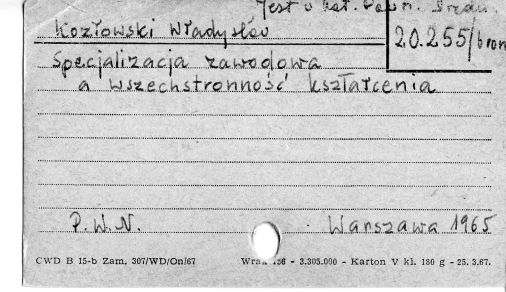 Jest u kat.
Kozłowski Władysław
20.255/bron
Specjalizacja zawodowa
a wszechstronność kształcenia
P.W.N. Warszawa 1965
CWD B 15-b Zam. 307/WD/On/67 - 3.305.000 - Karton V kl. 180 g - 25. 3.67.